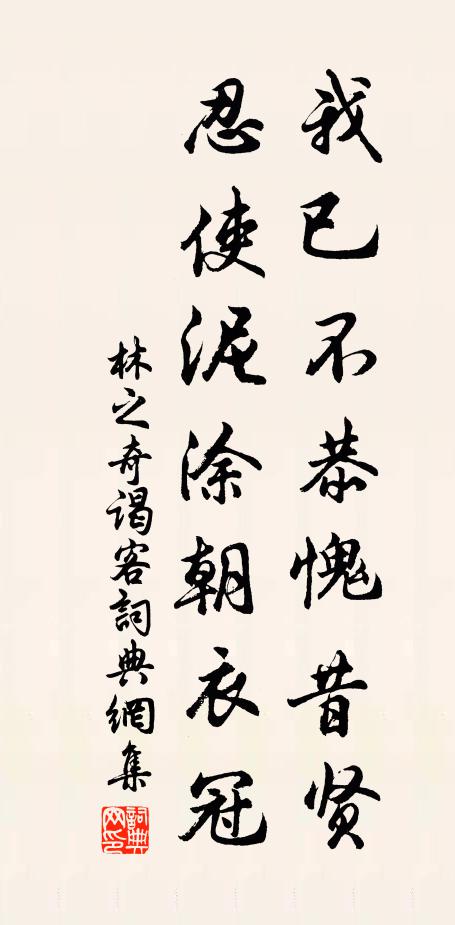 我已不恭愧昔贤
忍使泥涂朝衣冠
林之奇谒客詞典網集
詞典網印